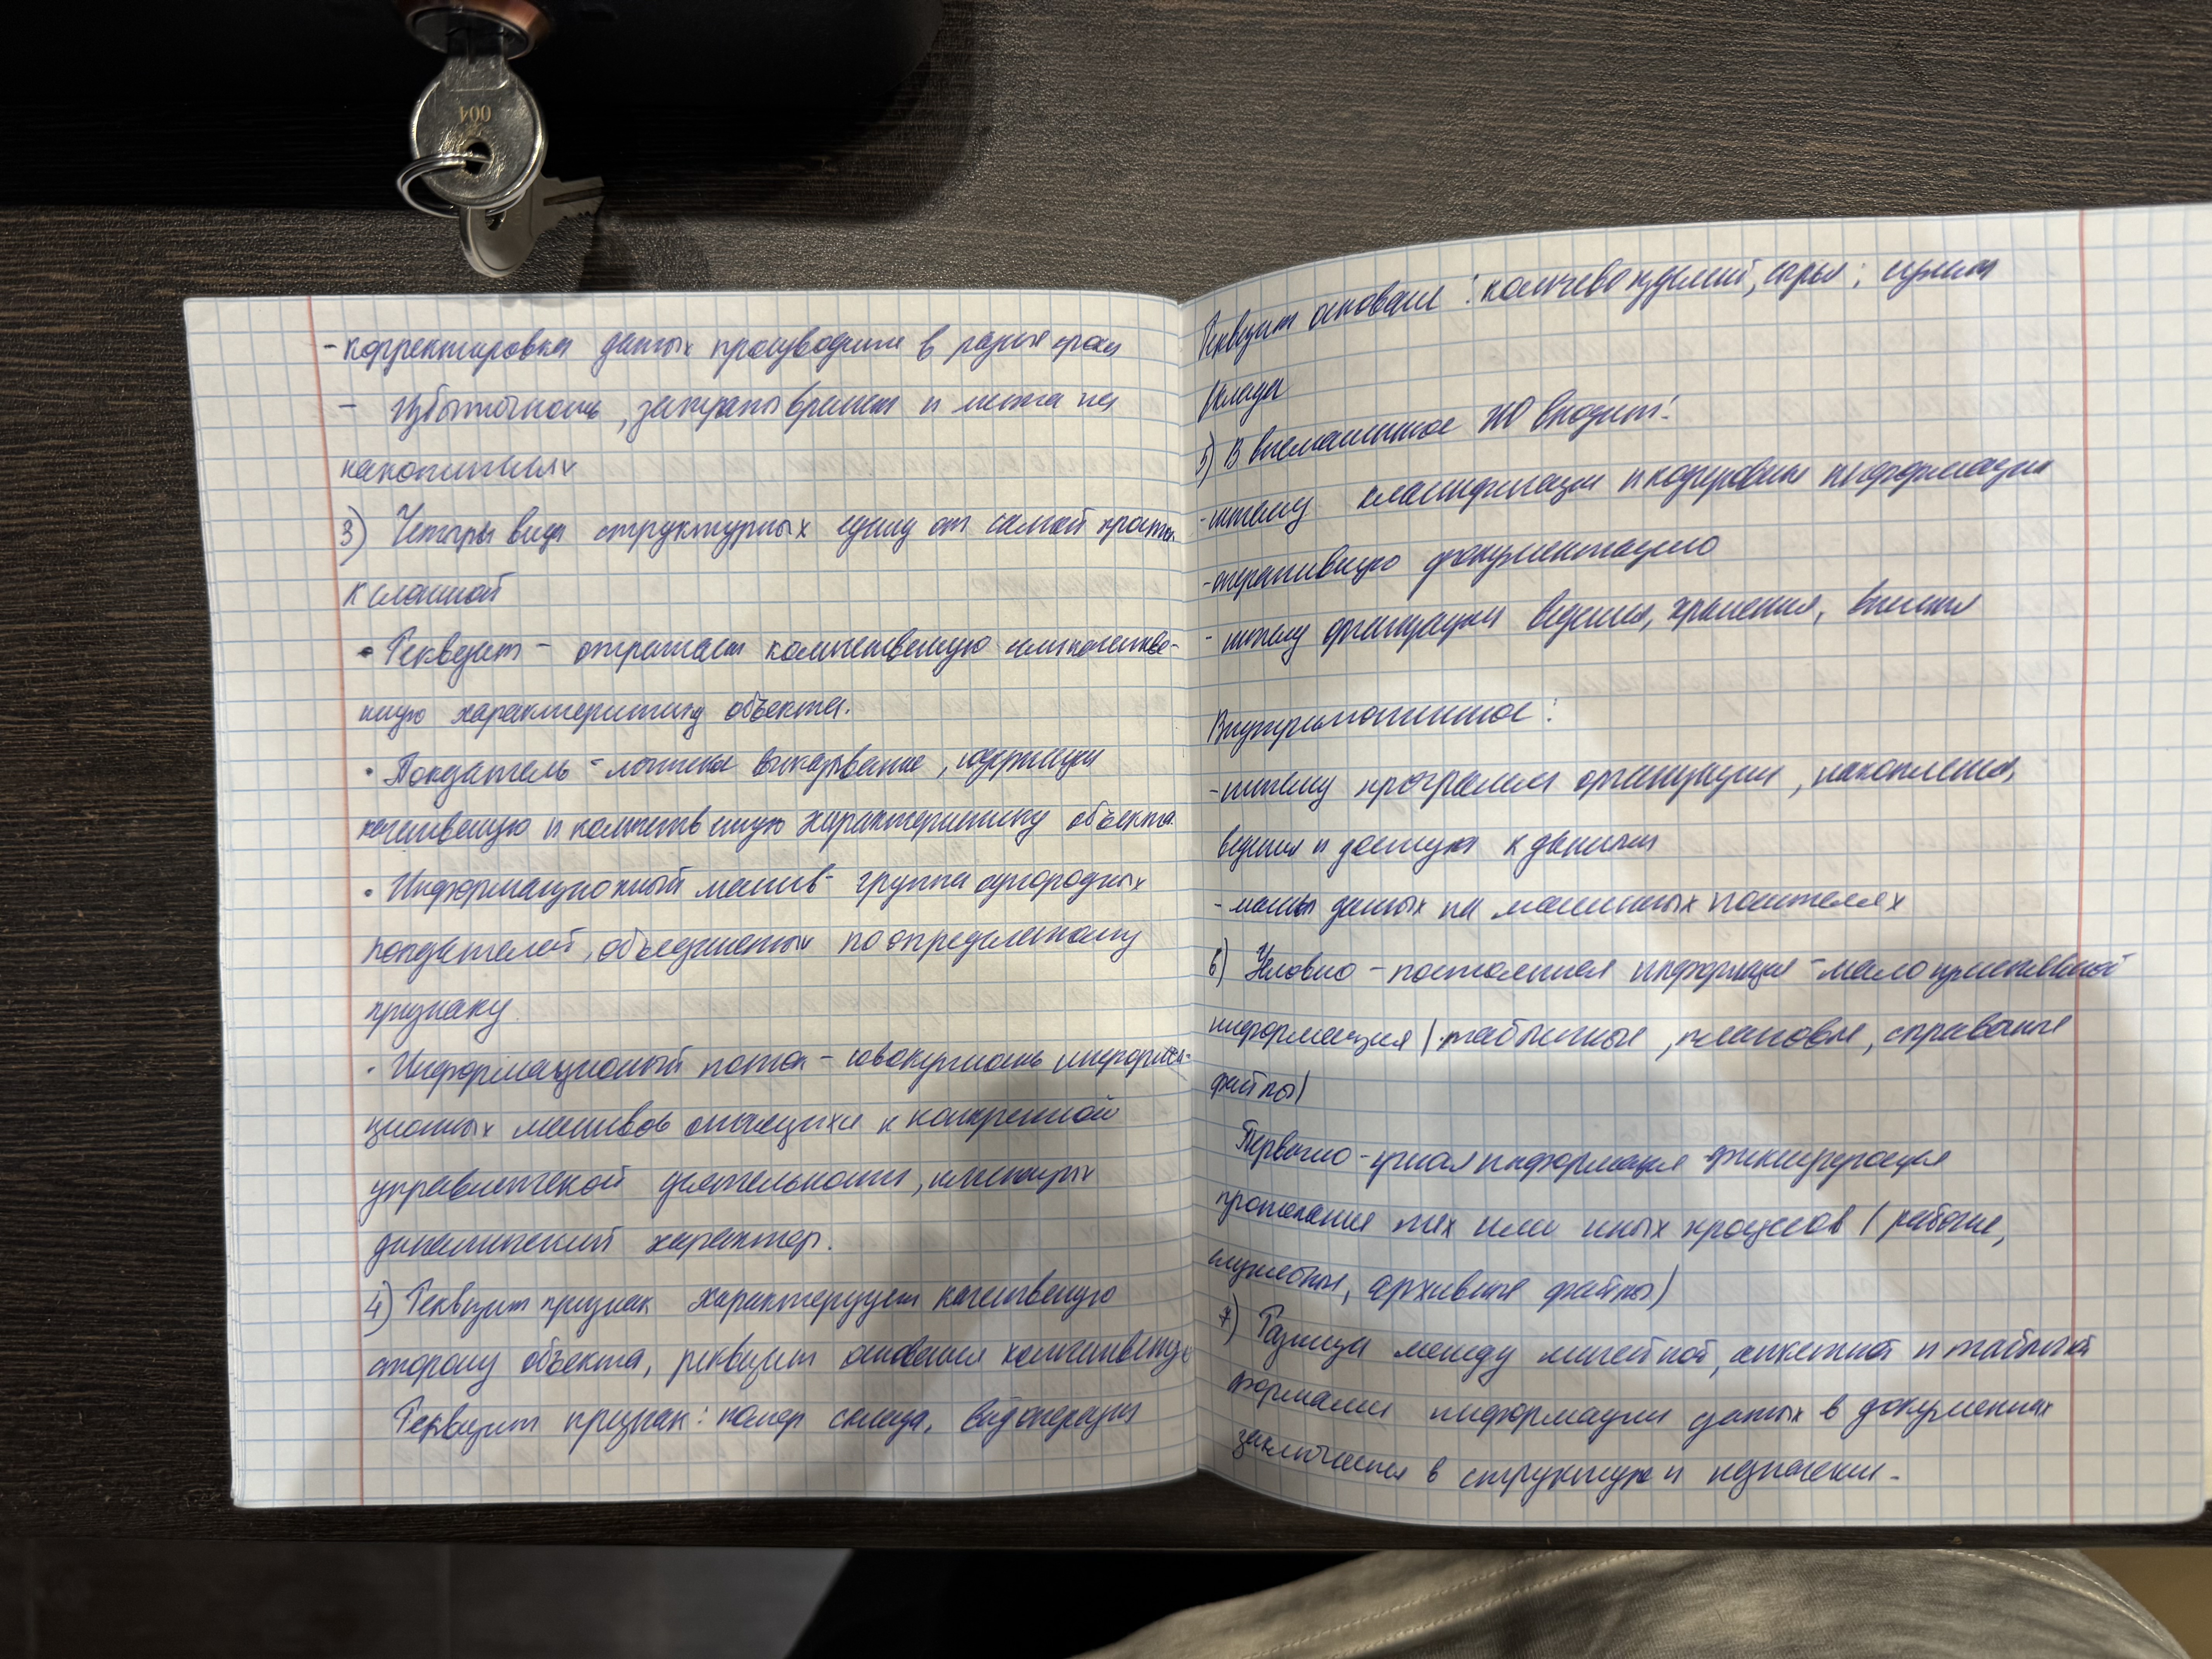 004
- корректировка данных производится в разные сроки
- избыточность, затраты времени и места на
накопителях
3) Четыре вида структурных единиц от самой простой
к сложной
• Реквизит - отражает количественную или качестве-
нную характеристику объекта.
• Показатель - логическое высказывание, содержащее
качественную и количественную характеристику объекта.
• Информационный массив - группа однородных
показателей, объединенных по определенному
признаку.
• Информационный поток - совокупность информа-
ционных массивов относящихся к конкретной
управленческой деятельности, имеющих
динамический характер.
4) Реквизит признак характеризует качественную
сторону объекта, реквизит основания количественную
Реквизит признак: номер склада, вид операции
Реквизит основание: количество изделий, сырья;
склада
5) В внемашинное ИО входит:
- систему классификации и кодирования информации
- оперативную документацию
- систему организации ведения, хранения,
Внутримашинное:
- систему программ организации, накопления,
ведения и доступа к данным
- массивы данных на машинных носителях
6) Условно - постоянная информация -
информация (табличные, плановые, справочные
файлы)
информация фиксирующая
протекание тех или иных процессов (рабочие,
служебные, архивные файлы)
7) Разница между линейной, анкетной и табличной
формами информации данных в документах
заключается в структуре и назначении.